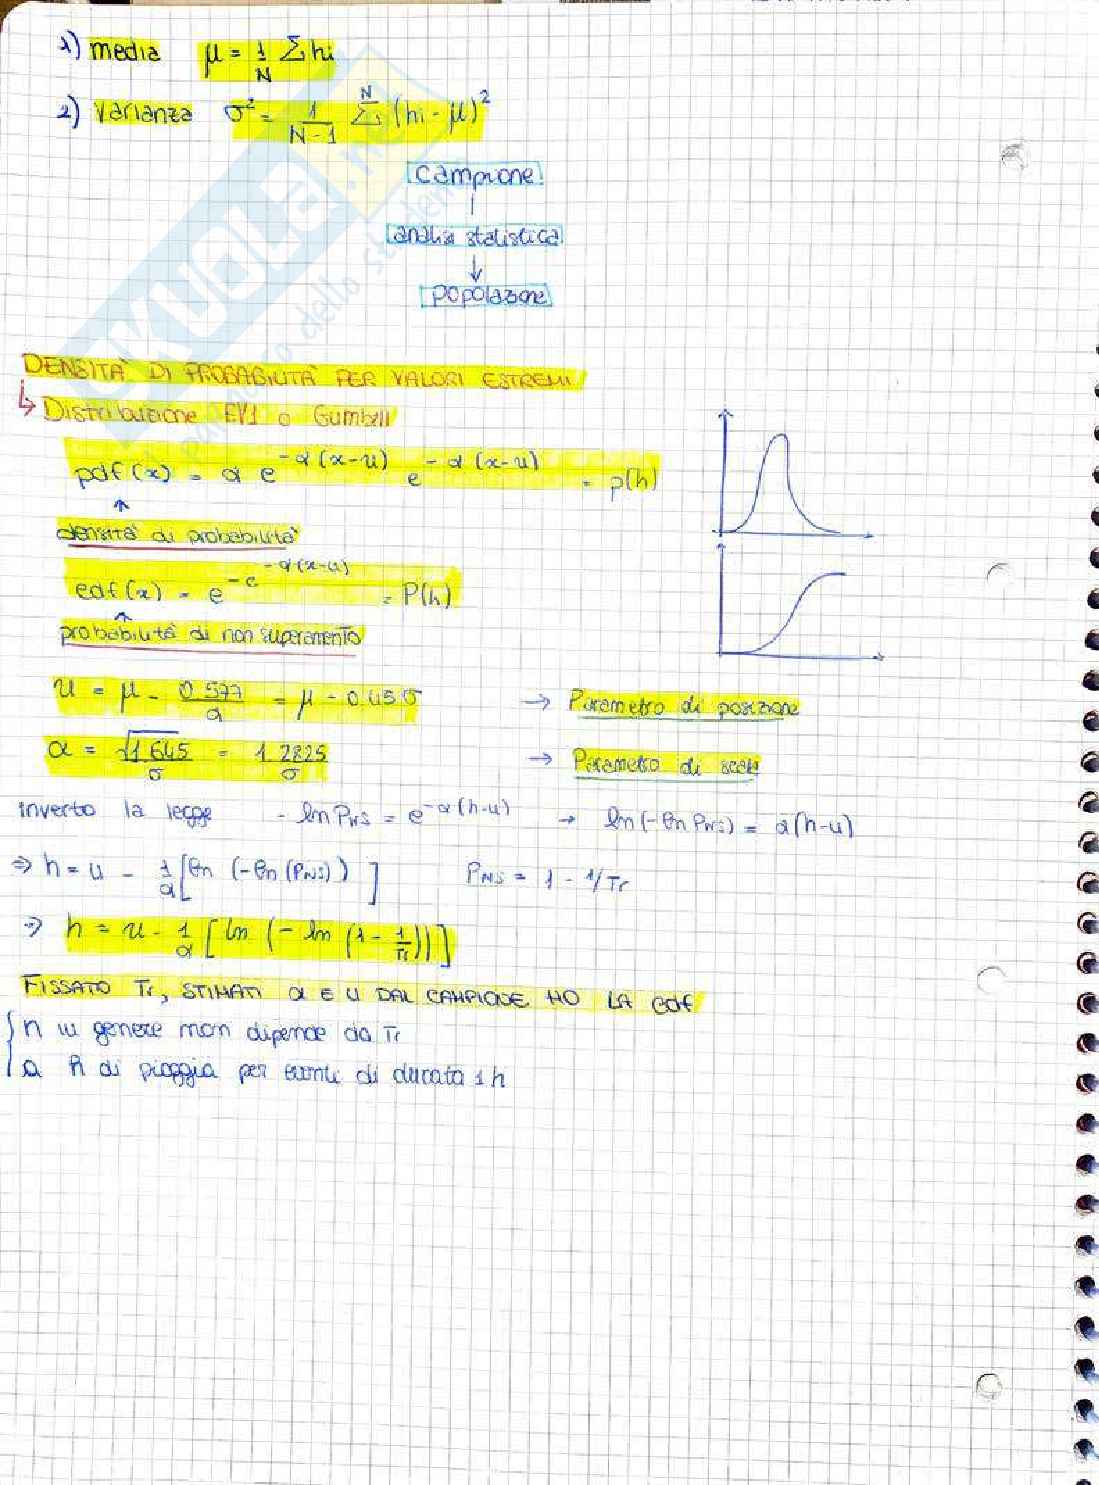 1) media μ = 1/N Σ hi
2) varianza σ² = 1/(N-1) Σ^N (hi - μ)²
campione
analisi statistica
popolazione
DENSITA' DI PROBABILITA' PER VALORI ESTREMI
↳ Distribuzione EV1 o Gumbell
pdf(x) = α e^(-α(x-u)) e^(-α(x-u)) = p(h)
densità di probabilità
cdf(x) = e^(-e^(-α(x-u))) = P(h)
probabilità di non superamento
u = μ - 0.577/α = μ - 0.45σ → Parametro di posizione
α = √1.645/σ = 1.2825/σ → Parametro di scala
inverto la legge - ln PNS = e^(-α(h-u)) → ln(-ln PNS) = α(h-u)
⇒ h = u - 1/α [ln (-ln (PNS))] PNS = 1 - 1/Tr
⇒ h = u - 1/α [ln (-ln (1 - 1/Tr))]
FISSATO Tr, STIMATI α E U DAL CAMPIONE HO LA cdf
n in genere non dipende da Tr
a h di pioggia per eventi di durata 1h
SKUOLA.net
il paradiso dello studente